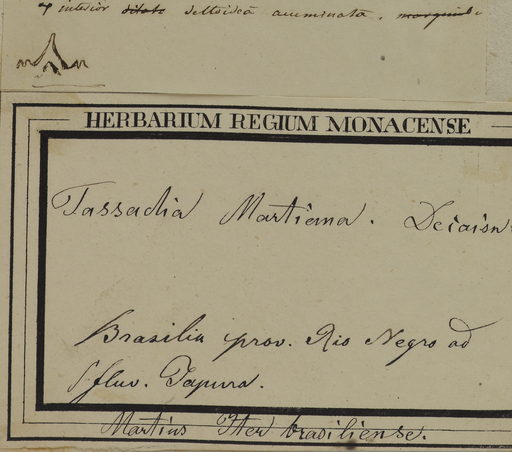 interior dilato deltoideâ acuminatâ, marginibe
HERBARIUM REGIUM MONACENSE
Tassadia Martiana. Decaisn
Brasilia prov. Rio Negro ad
fluv. Japura.
Martius Iter brasiliense.